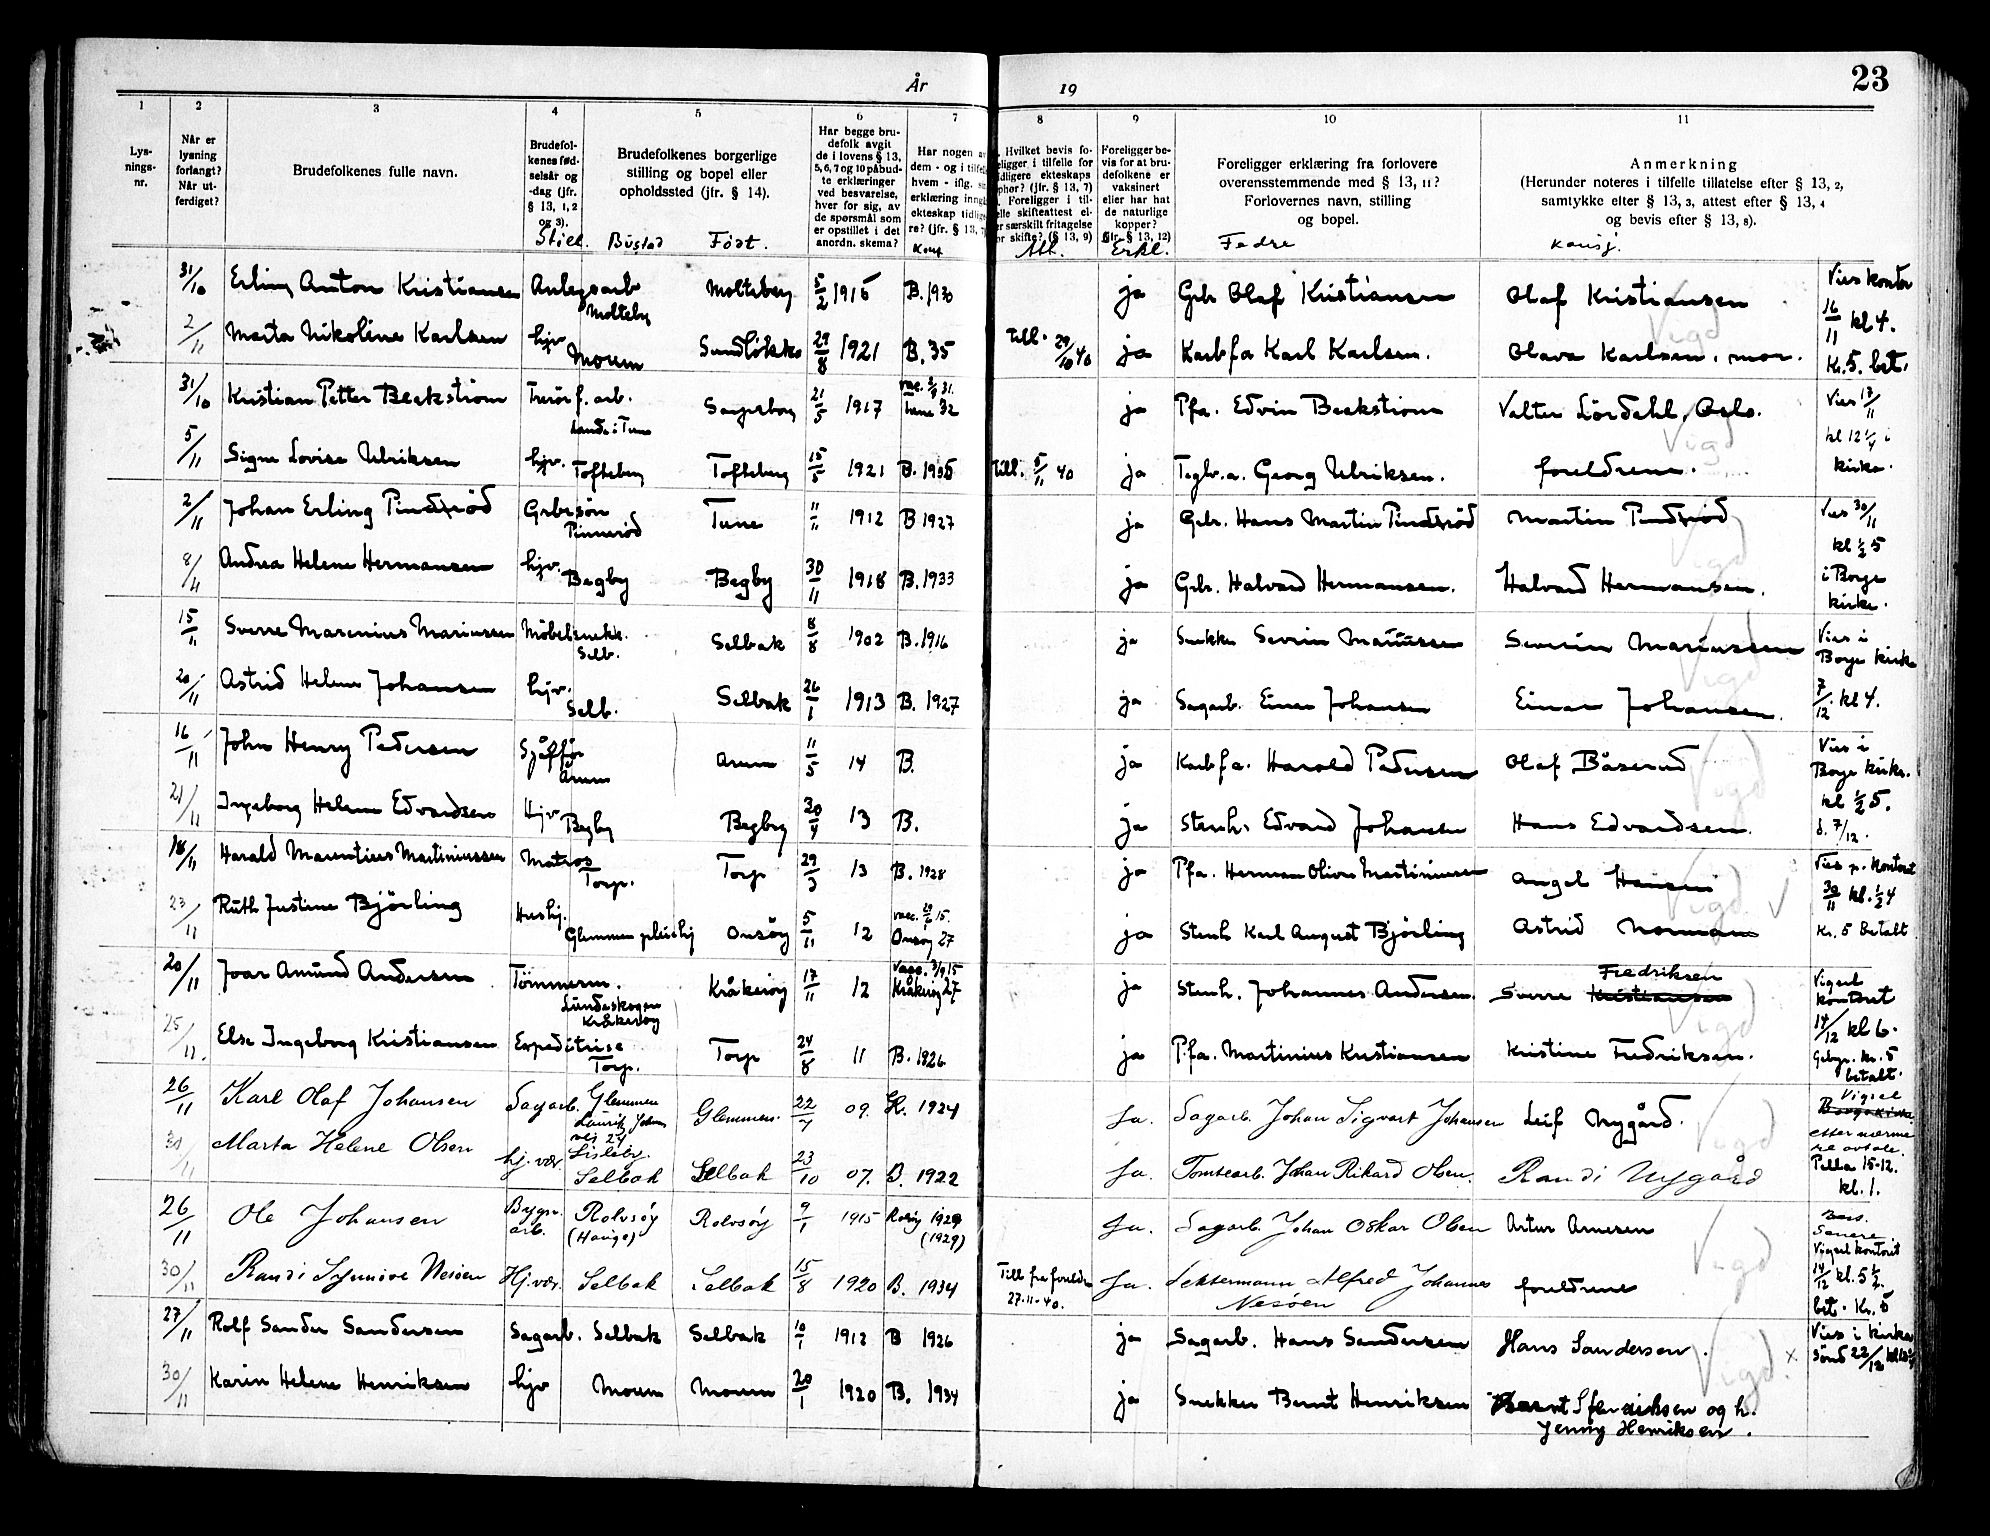 År 19
23
1 2 3 4 5 6 7 8 9 10 11
Lys-
nings-
nr.
Når er
lysning
forlangt?
Når ut-
ferdiget?
Brudefolkenes fulle navn.
Brudefol-
kenes fød-
selsår og
-dag (jfr.
§ 13, 1, 2
og 3).
Brudefolkenes borgerlige
stilling og bopel eller
opholdssted (jfr. § 14).
Har begge bru-
defolk avgit
de i lovens § 13,
5, 6, 7 og 10 påbud-
te erklæringer
ved besvarelse,
hver for sig, av
de spørsmål som
er opstillet i det
anordn. skema?
Har nogen av
dem - og i tilfelle
hvem - iflg.
erklæring inng
ekteskap tidlige-
re? (jfr. § 13,
Hvilket bevis fo-
religger i tilfelle for
tidligere ekteskaps
ophør? (jfr. § 13, 7)
Foreligger i til-
felle skifteattest el-
er særskilt fritagelse
for skifte? (§ 13, 9)
Foreligger be-
vis for at bru-
defolkene er
vaksinert
eller har hat
de naturlige
kopper?
(jfr. § 13, 12)
Foreligger erklæring fra forlovere
overensstemmende med § 13, 11?
Forlovernes navn, stilling
og bopel.
Anmerkning
(Herunder noteres i tilfelle tillatelse efter § 13, 2,
samtykke efter § 13, 3, attest efter § 13, 4
og bevis efter § 13, 8).
Still. Bustad Født. Konf Att. Erkl. Fedre
31/10 Erling Anton Kristiansen Anlegsarb Molteby Molteberg 5/2 1916 B. 1930 ja Gbr Olaf Kristiansen Olaf Kristiansen Vies kontor
16/11 kl 4.
2/11 Marta Nikoline Karlsen hjv Moum Sundløkka 29/8 1921 B. 35 Till. 29/10 40 ja Karbfa Karl Karlsen. Olava Karlsen, mor. Kr. 5. bet.
31/10 Kristian Petter Beckstrøm Trerørf. arb. Sarpsborg 21/5 1917 Tune 32 ja Pfa. Edvin Beckstrøm Valter Lørdahl, Oslo. Vies 17/11
kl 12 1/4 i
kirka.
5/11 Signe Lovise Ulriksen hjv. Tofteberg Tofteberg 15/5 1921 B. 1935 Till. 5/11 40 ja Teglv.a. Georg Ulriksen. foreldrene.
2/11 Johan Erling Pindrød Grbrsøn Pinnerød Tune 11/11 1912 B 1927 ja Gbr. Hans Martin Pindrød Martin Pindrød Vies 30/11
kl 1/2 5
i Borge
kirke.
8/11 Andrea Helene Hermansen hjv. Begby Begby 30/11 1918 B. 1933 ja Gbr. Halvard Hermansen. Halvard Hermansen.
15/11 Sverre Marenius Mariussen Møbelsnekk. Selb. Selbak 8/8 1902 B. 1916 ja Snekker Severin Mariussen Severin Mariussen Vies i
Borge kirke
7/12 kl 4.
20/11 Astrid Helene Johansen hjv. Selb. Selbak 26/1 1913 B. 1927 ja Sagarb. Einar Johansen Einar Johansen.
16/11 John Henry Pedersen Sjåffør Årum Årum 11/5 14 B. ja Karbfa. Harald Pedersen Olaf Båserud Vies i
Borge kirke.
kl 1/2 5.
d. 7/12.
21/11 Ingeborg Helene Edvardsen Hjv Begby Begby 30/4 13 B. ja Stenh. Edvard Johansen Hans Edvardsen.
18/11 Harald Maurentius Martiniussen Matros Torp. Torp 29/3 13 B. 1928 ja Pfa. Herman Oliver Martiniussen Angel Hansen Vies p. kontoret
30/11 kl. 1/2 4
Kr. 5 betalt
23/11 Ruth Justine Bjørling Hushj. Glemmen pleiehj Onsøy 5/11 12 vacc. 29/6 15. Onsøy 27 ja Stenh Karl August Bjørling Astrid Norman
20/11 Joar Amund Andersen Tømmerm. Lundeskogen Kråkerøy Kråkerøy 17/11 12 Vacc. 3/9 15 Kråkerøy 27 ja Stenh. Johannes Andersen. Sverre Kristiansen Fredriksen Vigsel
kontoret
14/12 kl 6.
Gebyr. kr. 5
betalt.
25/11. Else Ingeborg Kristiansen Expeditrise Torp. Torp 24/8 11 B. 1826 ja Pfa. Martinius Kristiansen Kristine Fredriksen.
26/11 Karl Olaf Johansen Sagarb. Glemmen Glemmen. 22/7 09. K. 1924 Ja. Sagarb. Johan Sigvart Johansen Leif Nygård. Vigsel
etter nærme
re avtale.
Pella 15-12.
kl. 1.
30/11 Marta Helene Olsen hj. vær. Lisleby. Selbak Selbak 23/10 07. B. 1922 Ja. Tomtearb. Johan Rikard Olsen. Randi Nygård
26/11 Ole Johansen Bygn. arb. Rolvsøy (Hauge) Rolvsøy 9/1 1915 Rolvsøy 1929 (1929) Ja. Sagarb. Johan Oskar Olsen Artur Arnesen Vigsel kontoret
14/12 kl. 5 1/2.
bet. kr. 5
30/11 Randi Synnøve Nesøen Hj. vær. Selbak Selbak 15/8 1920 B. 1934 Till fra foreldre 27-11-40. Ja. Sektermann Alfred Johannes Nesøen foreldrene
27/11 Rolf Sander Sandersen Sagarb. Selbak Selbak 10/1 1912 B 1926 ja Sagarb. Hans Sandersen Hans Sandersen. Vies i kirka
Sønd 22/12
30/11 Karin Helene Henriksen hjv Moum Moum 20/1 1920 B. 1934 ja Snekker Bernt Henriksen og h.
Jenny Henriksen.
Vigd
Vigd
Vigd
Vigd
Vigd
Vigd
Vigd
Vigd
Vigd
Vigd